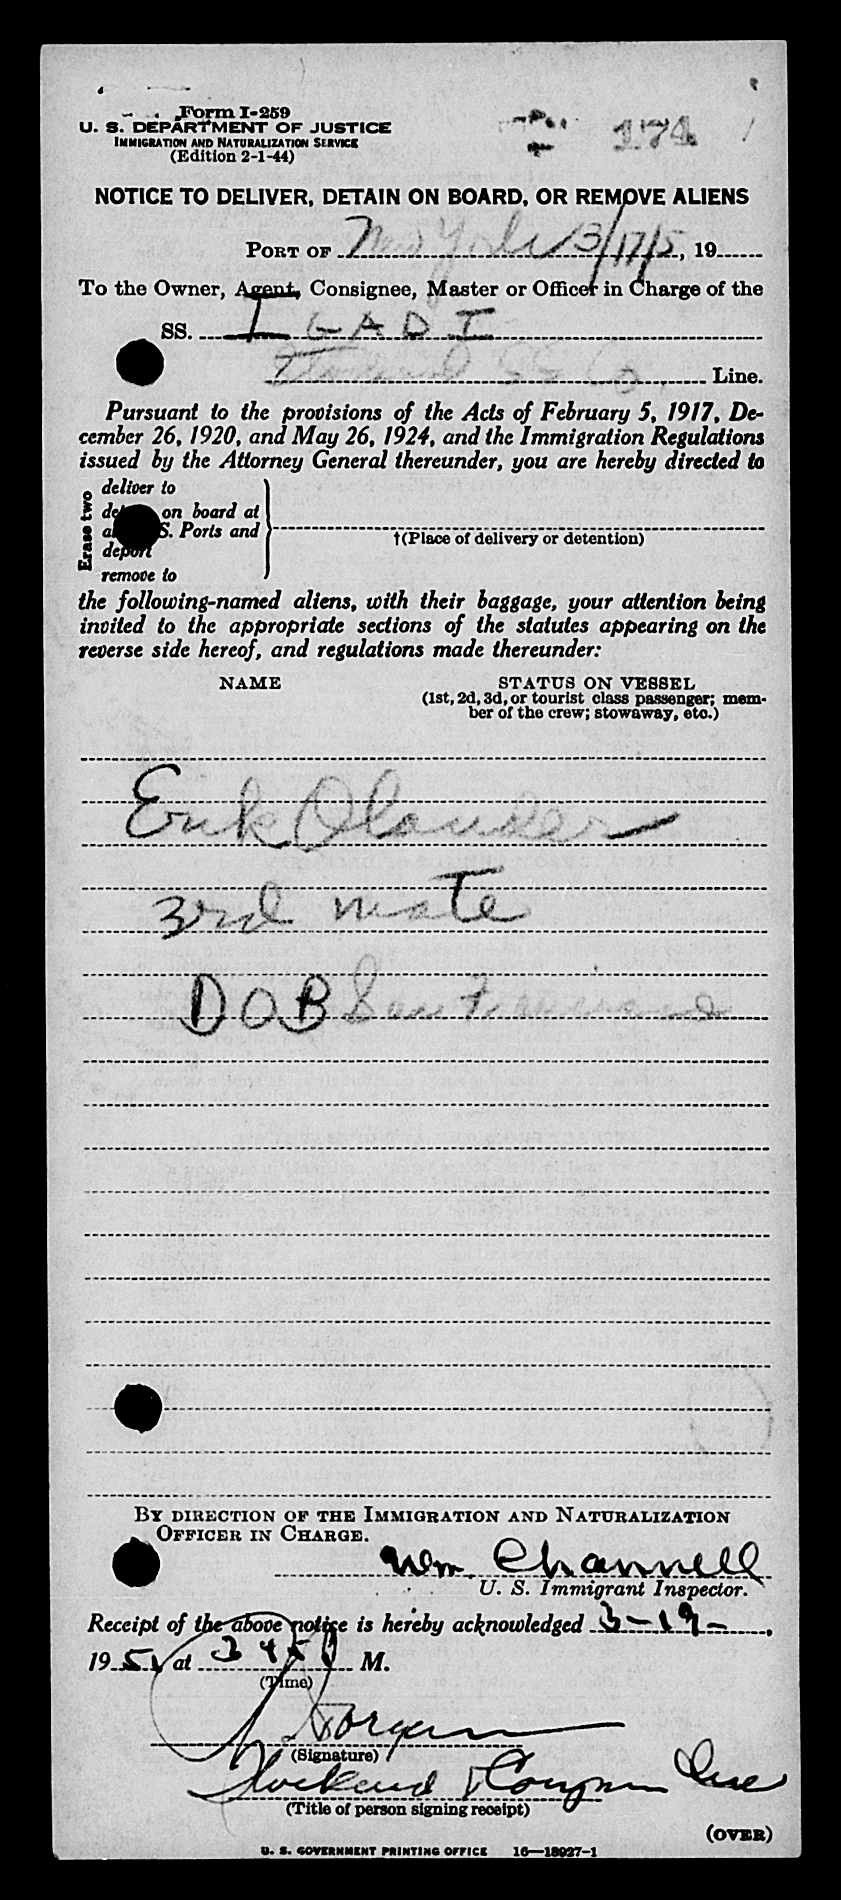 Form I-259
U. S. DEPARTMENT OF JUSTICE
IMMIGRATION AND NATURALIZATION SERVICE
(Edition 2-1-44)
174
NOTICE TO DELIVER, DETAIN ON BOARD, OR REMOVE ALIENS
PORT OF New York 3/17/5, 19
To the Owner, Agent, Consignee, Master or Officer in Charge of the
SS. IGADI
SS Co. Line.
Pursuant to the provisions of the Acts of February 5, 1917, De-
cember 26, 1920, and May 26, 1924, and the Immigration Regulations
issued by the Attorney General thereunder, you are hereby directed to
Erase two
deliver to
on board at
S. Ports and
deport
remove to
†(Place of delivery or detention)
the following-named aliens, with their baggage, your attention being
invited to the appropriate sections of the statutes appearing on the
reverse side hereof, and regulations made thereunder:
NAME STATUS ON VESSEL
(1st, 2d, 3d, or tourist class passenger; mem-
ber of the crew; stowaway, etc.)
Erik Olander
3rd mate
DOB San Francisco
BY DIRECTION OF THE IMMIGRATION AND NATURALIZATION
OFFICER IN CHARGE.
Wm. Channell
U. S. Immigrant Inspector.
Receipt of the above notice is hereby acknowledged 3-19-,
19 51 at M.
(Time)
(Signature)
(Title of person signing receipt)
(OVER)
U. S. GOVERNMENT PRINTING OFFICE 16—18927-1